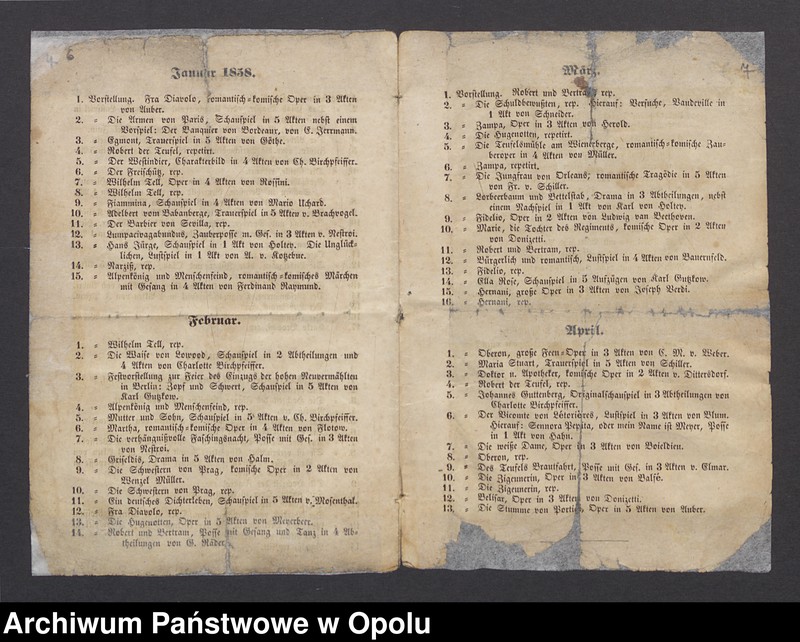 6
Januar 1858.
1. Vorstellung. Fra Diavolo, romantisch=komische Oper in 3 Akten
von Auber.
2. = Die Armen von Paris, Schauspiel in 5 Akten nebst einem
Vorspiel: Der Banquier von Bordeaux, von E. Jerrmann.
3. = Egmont, Trauerspiel in 5 Akten von Göthe.
4. = Robert der Teufel, repetirt.
5. = Der Westindier, Charakterbild in 4 Akten von Ch. Birchpfeiffer.
6. = Der Freischütz, rep.
7. = Wilhelm Tell, Oper in 4 Akten von Rossini.
8. = Wilhelm Tell, rep.
9. = Fiammina, Schauspiel in 4 Akten von Mario Uchard.
10. = Adelbert vom Babanberge, Trauerspiel in 5 Akten v. Brachvogel.
11. = Der Barbier von Sevilla, rep.
12. = Lumpacivagabundus, Zauberposse m. Ges. in 3 Akten v. Nestroi.
13. = Hans Jürge, Schauspiel in 1 Akt von Holtey. Die Unglück-
lichen, Lustspiel in 1 Akt von A. v. Kotzebue.
14. = Narziß, rep.
15. = Alpenkönig und Menschenfeind, romantisch=komisches Märchen
mit Gesang in 4 Akten von Ferdinand Raymund.
Februar.
1. = Wilhelm Tell, rep.
2. = Die Waise von Lowood, Schauspiel in 2 Abtheilungen und
4 Akten von Charlotte Birchpfeiffer.
3. = Festvorstellung zur Feier des Einzugs der hohen Neuvermählten
in Berlin: Zopf und Schwert, Schauspiel in 5 Akten von
Karl Gutzkow.
4. = Alpenkönig und Menschenfeind, rep.
5. = Mutter und Sohn, Schauspiel in 5 Akten v. Ch. Birchpfeiffer.
6. = Martha, romantisch=komische Oper in 4 Akten von Flotow.
7. = Die verhängnißvolle Faschingsnacht, Posse mit Ges. in 3 Akten
von Nestroi.
8. = Griseldis, Drama in 5 Akten von Halm.
9. = Die Schwestern von Prag, komische Oper in 2 Akten von
Wenzel Müller.
10. = Die Schwestern von Prag, rep.
11. = Ein deutsches Dichterleben, Schauspiel in 5 Akten v. Mosenthal.
12. = Fra Diavolo, rep.
13. = Die Hugenotten, Oper in 5 Akten von Meyerbeer.
14. = Robert und Bertram, Posse mit Gesang und Tanz in 4 Ab-
theilungen von G. Räder.
7
März.
1. Vorstellung. Robert und Bertram, rep.
2. = Die Schuldbewußten, rep. Hierauf: Versuche, Vaudeville in
1 Akt von Schneider.
3. = Zampa, Oper in 3 Akten von Herold.
4. = Die Hugenotten, repetirt.
5. = Die Teufelsmühle am Wienerberge, romantisch=komische Zau-
beroper in 4 Akten von Müller.
6. = Zampa, repetirt.
7. = Die Jungfrau von Orleans, romantische Tragödie in 5 Akten
von Fr. v. Schiller.
8. = Lorbeerbaum und Bettelstab, Drama in 3 Abtheilungen, nebst
einem Nachspiel in 1 Akt von Karl von Holtey.
9. = Fidelio, Oper in 2 Akten von Ludwig van Beethoven.
10. = Marie, die Tochter des Regiments, komische Oper in 2 Akten
von Donizetti.
11. = Robert und Bertram, rep.
12. = Bürgerlich und romantisch, Lustspiel in 4 Akten von Bauernfeld.
13. = Fidelio, rep.
14. = Ella Rose, Schauspiel in 5 Aufzügen von Karl Gutzkow.
15. = Hernani, große Oper in 3 Akten von Joseph Verdi.
16. = Hernani, rep.
April.
1. = Oberon, große Feen=Oper in 3 Akten von C. M. v. Weber.
2. = Maria Stuart, Trauerspiel in 5 Akten von Schiller.
3. = Doktor u. Apotheker, komische Oper in 2 Akten v. Dittersdorf.
4. = Robert der Teufel, rep.
5. = Johannes Guttenberg, Originalschauspiel in 3 Abtheilungen von
Charlotte Birchpfeiffer.
6. = Der Vicomte von Létorières, Lustspiel in 3 Akten von Blum.
Hierauf: Sennora Pepita, oder mein Name ist Meyer, Posse
in 1 Akt von Hahn.
7. = Die weiße Dame, Oper in 3 Akten von Boieldieu.
8. = Oberon, rep.
9. = Des Teufels Brautfahrt, Posse mit Ges. in 3 Akten v. Elmar.
10. = Die Zigeunerin, Oper in 3 Akten von Balfé.
11. = Die Zigeunerin, rep.
12. = Belisar, Oper in 3 Akten von Donizetti.
13. = Die Stumme von Portici, Oper in 5 Akten von Auber.
Archiwum Państwowe w Opolu